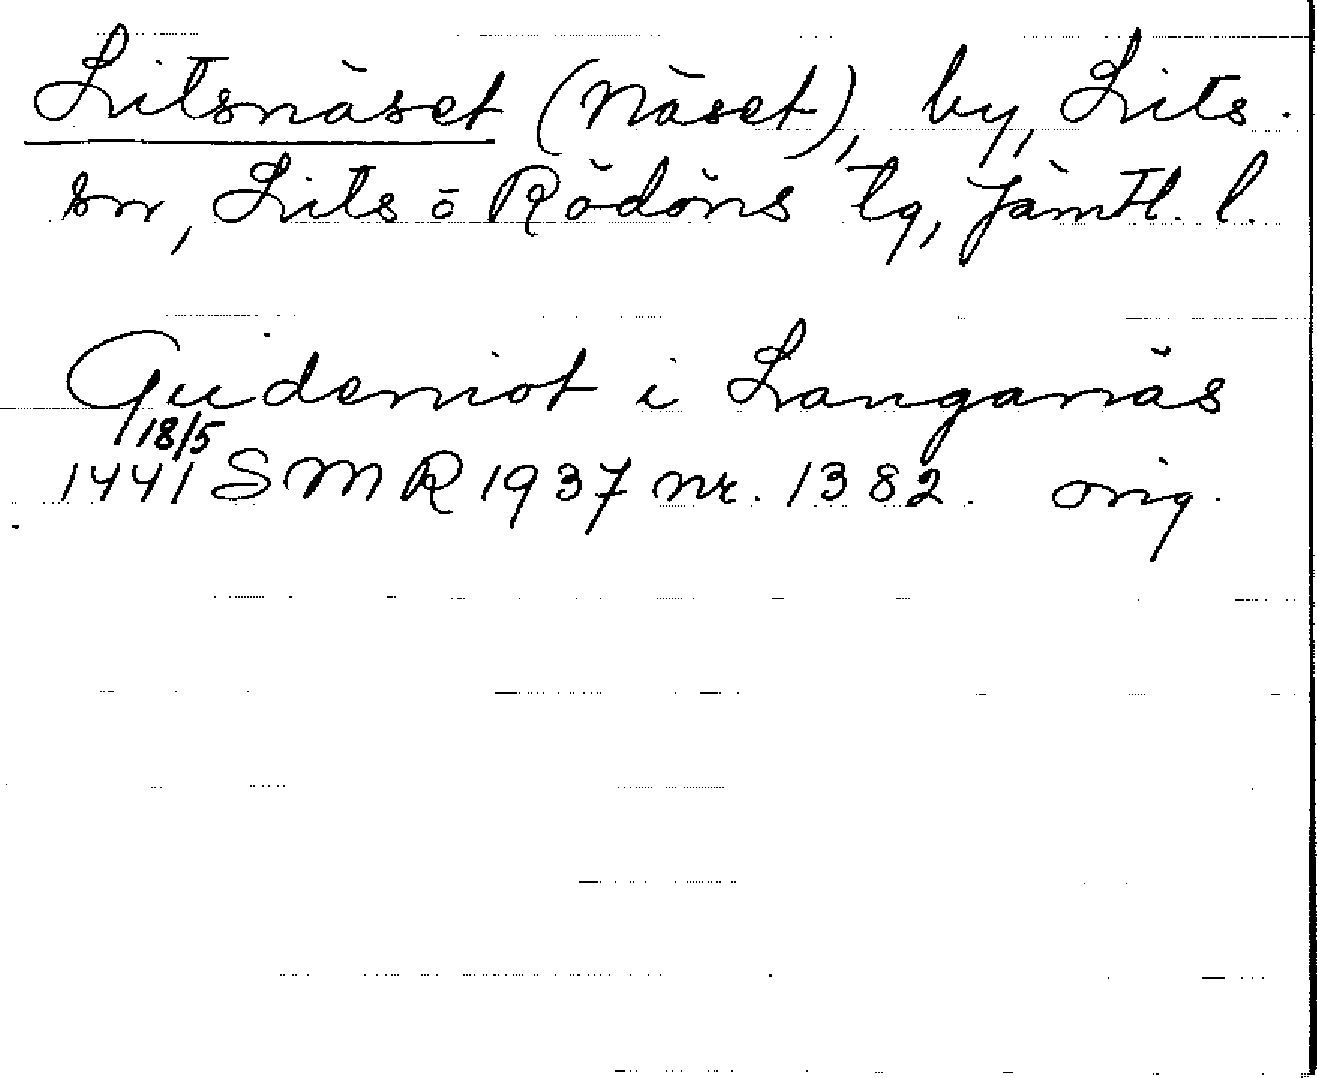 Litsnäset (Näset), by, Lits
sn, Lits o Rödöns tg, Jämtl. l.
Gudemot i Langanäs
18/5
1441 SMR 1937 nr. 1382. orig.